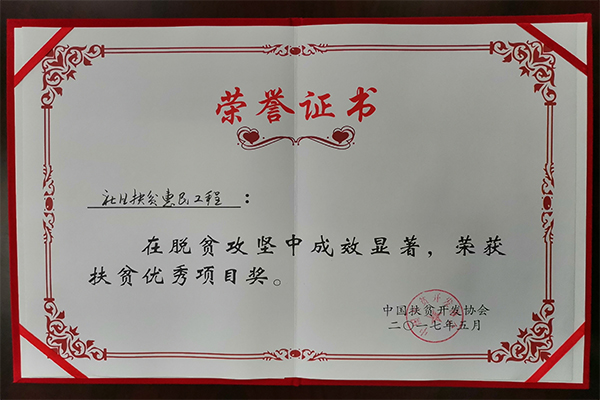 荣誉证书
社区扶贫惠民工程：
在脱贫攻坚中成效显著，荣获
扶贫优秀项目奖。
中国扶贫开发协会
二〇一七年五月